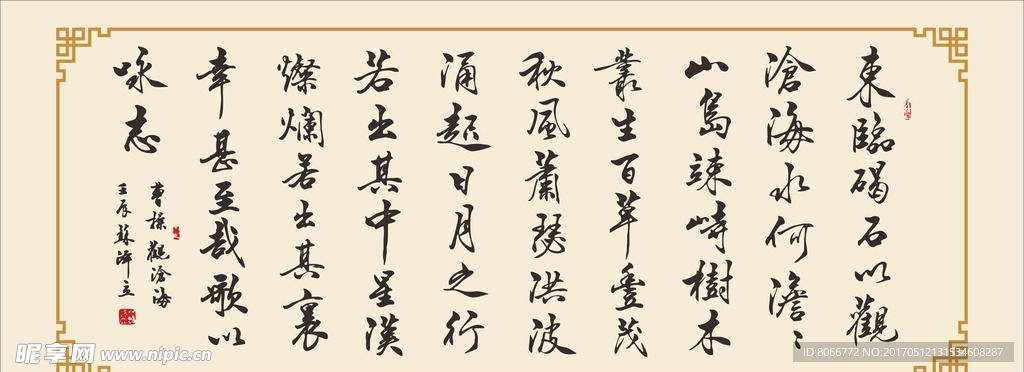 東臨碣石以觀
滄海水何澹〻
山島竦峙樹木
叢生百草豐茂
秋風蕭瑟洪波
涌起日月之行
若出其中星漢
燦爛若出其裏
幸甚至哉歌以
咏志
曹操觀滄海
壬辰蘇澤立
昵享网 www.nipic.cn
ID:8066772 NO:20170512131534608287